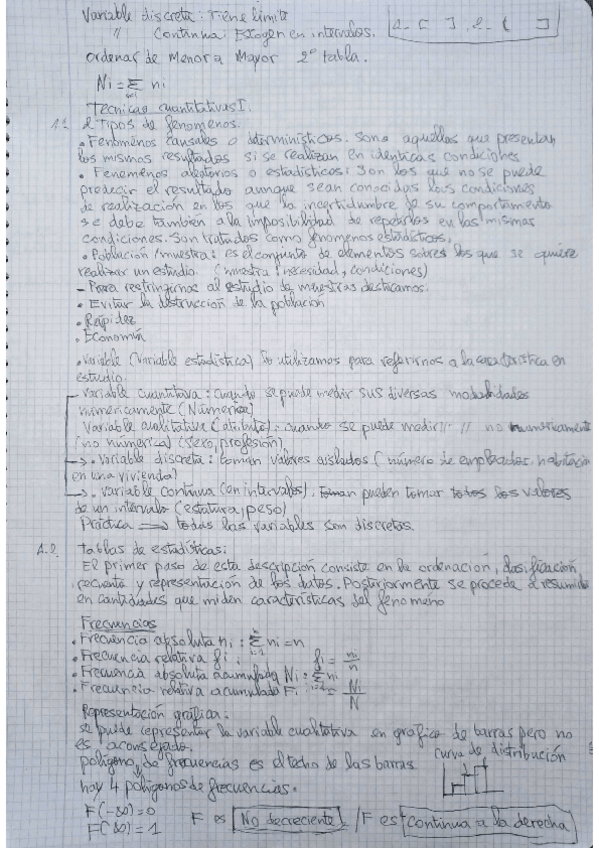 Variable discreta: Tiene límite
" Continua: Escogen en intervalos. 1- [ ] , 2- ( ]
Ordenar de Menor a Mayor 2º tabla.
Ni = Σ ni
Tecnicas cuantitativas I.
1.1 2 Tipos de fenomenos.
• Fenómenos causales o determinísticos. Sono aquellos que presentan
los mismos resultados si se realizan en idénticas condiciones
• Fenemenos aleatorios o estadísticos: Son los que no se puede
predecir el resultado aunque sean conocidas las condiciones
de realización en los que la incertidumbre de su comportamiento
se debe también a la imposibilidad de repetirlos en las mismas
condiciones. Son tratados como fenomenos estadísticos.
• Población /muestra: es el conjunto de elementos sobre los que se quiere
realizar un estudio. (muestra: necesidad, condiciones)
- Para restringirnos al estudio de muestras destacamos.
• Evitar la destrucción de la población
• Rápidez
• Economía
• Variable (Variable estadística) lo utilizamos para referirnos a la característica en
estudio.
- Variable cuantitativa: cuando se puede medir sus diversas modalidades
númericamente (Númerica)
Variable cualitativa (atributo): cuando se puede medir // // no numéricamente
(no númerica) (sexo, profesión)
→ • Variable discreta: toman valores aislados (número de empleados, habitación
en una vivienda)
→ • Variable continua (en intervalos). pueden tomar todos los valores
de un intervalo (estatura, peso)
Práctica ⟹ todas las variables son discretas.
1.2. tablas de estadísticas:
El primer paso de esta descripción consiste en la ordenación, clasificación,
recuento y representación de los datos. Posteriormente se procede a resumirlo
en cantidades que miden características del fenómeno
Frecuencias
• Frecuencia absoluta ni : Σ ni = n
• Frecuencia relativa fi : fi = ni/n
• Frecuencia absoluta acumulada Ni : Σ ni
• Frecuencia relativa acumulado Fi : Ni/N
Representación gráfica:
se puede representar la variable cualitativa en gráfico de barras pero no
es aconsejado.
polígono de frecuencias es el techo de las barras
curva de distribución
hay 4 polígonos de frecuencias.
F(-∞) = 0
F(∞) = 1
F es No decreciente / F es continua a la derecha